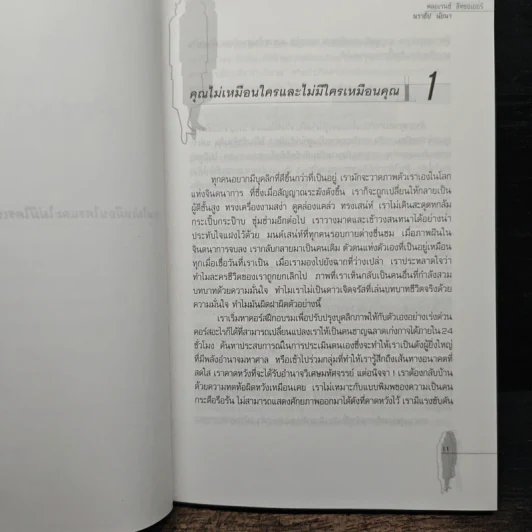 พลอมานซ์ ลิตรอเยร์
นราธิป นัยนา
คุณไม่เหมือนใครและไม่มีใครเหมือนคุณ 1
ทุกคนอยากมีบุคลิกที่ดีขึ้นกว่าที่เป็นอยู่ เรามักจะวาดภาพตัวเราเองในโลก
แห่งจินตนาการ ที่ซึ่งเมื่อสัญญาณระฆังดังขึ้น เราก็จะถูกเปลี่ยนให้กลายเป็น
ผู้ดีชั้นสูง ทรงเครื่องงามสง่า ดูคล่องแคล่ว ทรงเสน่ห์ เราไม่เดินสะดุดหกล้ม
กระเป๋บกระป๊าบ ซุ่มซ่ามอีกต่อไป เราวางมาดและเข้าวงสนทนาได้อย่างน่า
ประทับใจแฝงไว้ด้วย มนต์เสน่ห์ที่ทุกคนรอบกายต่างชื่นชม เมื่อภาพฝันใน
จินตนาการจบลง เรากลับกลายมาเป็นคนเดิม ตัวตนแห่งตัวเองที่เป็นอยู่เหมือน
ทุกเมื่อเชื่อวันที่เราเป็น เมื่อเรามองไปยังฉากที่ว่างเปล่า เราประหลาดใจว่า
ทำไมละครชีวิตของเราถูกยกเลิกไป ภาพที่เราเห็นกลับเป็นคนอื่นที่กำลังสวม
บทบาทด้วยความมั่นใจ ทำไมเราไม่เป็นดาวเจิดจรัสที่เล่นบทบาทชีวิตจริงด้วย
ความมั่นใจ ทำไมมันผิดฝาผิดตัวอย่างนี้
เราเริ่มหาคอร์สฝึกอบรมเพื่อปรับปรุงบุคลิกภาพให้กับตัวเองอย่างเร่งด่วน
คอร์สอะไรก็ได้ที่สามารถเปลี่ยนแปลงเราให้เป็นคนชาญฉลาดเก่งกาจได้ภายใน 24
ชั่วโมง ค้นหาประสบการณ์ในการประเมินตนเองซึ่งจะทำให้เราเป็นดังผู้ยิ่งใหญ่
ที่มีพลังอำนาจมหาศาล หรือเข้าไปร่วมกลุ่มที่ทำให้เรารู้สึกถึงเส้นทางอนาคตที่
สดใส เราคาดหวังที่จะได้รับอำนาจวิเศษมหัศจรรย์ แต่อนิจจา ! เราต้องกลับบ้าน
ด้วยความหดหู่อผิดหวังเหมือนเคย เราไม่เหมาะกับแบบพิมพ์ของความเป็นคน
กระตือรือร้น ไม่สามารถแสดงศักยภาพออกมาได้ดังที่คาดหวังไว้ เรามีแรงขับดัน
11